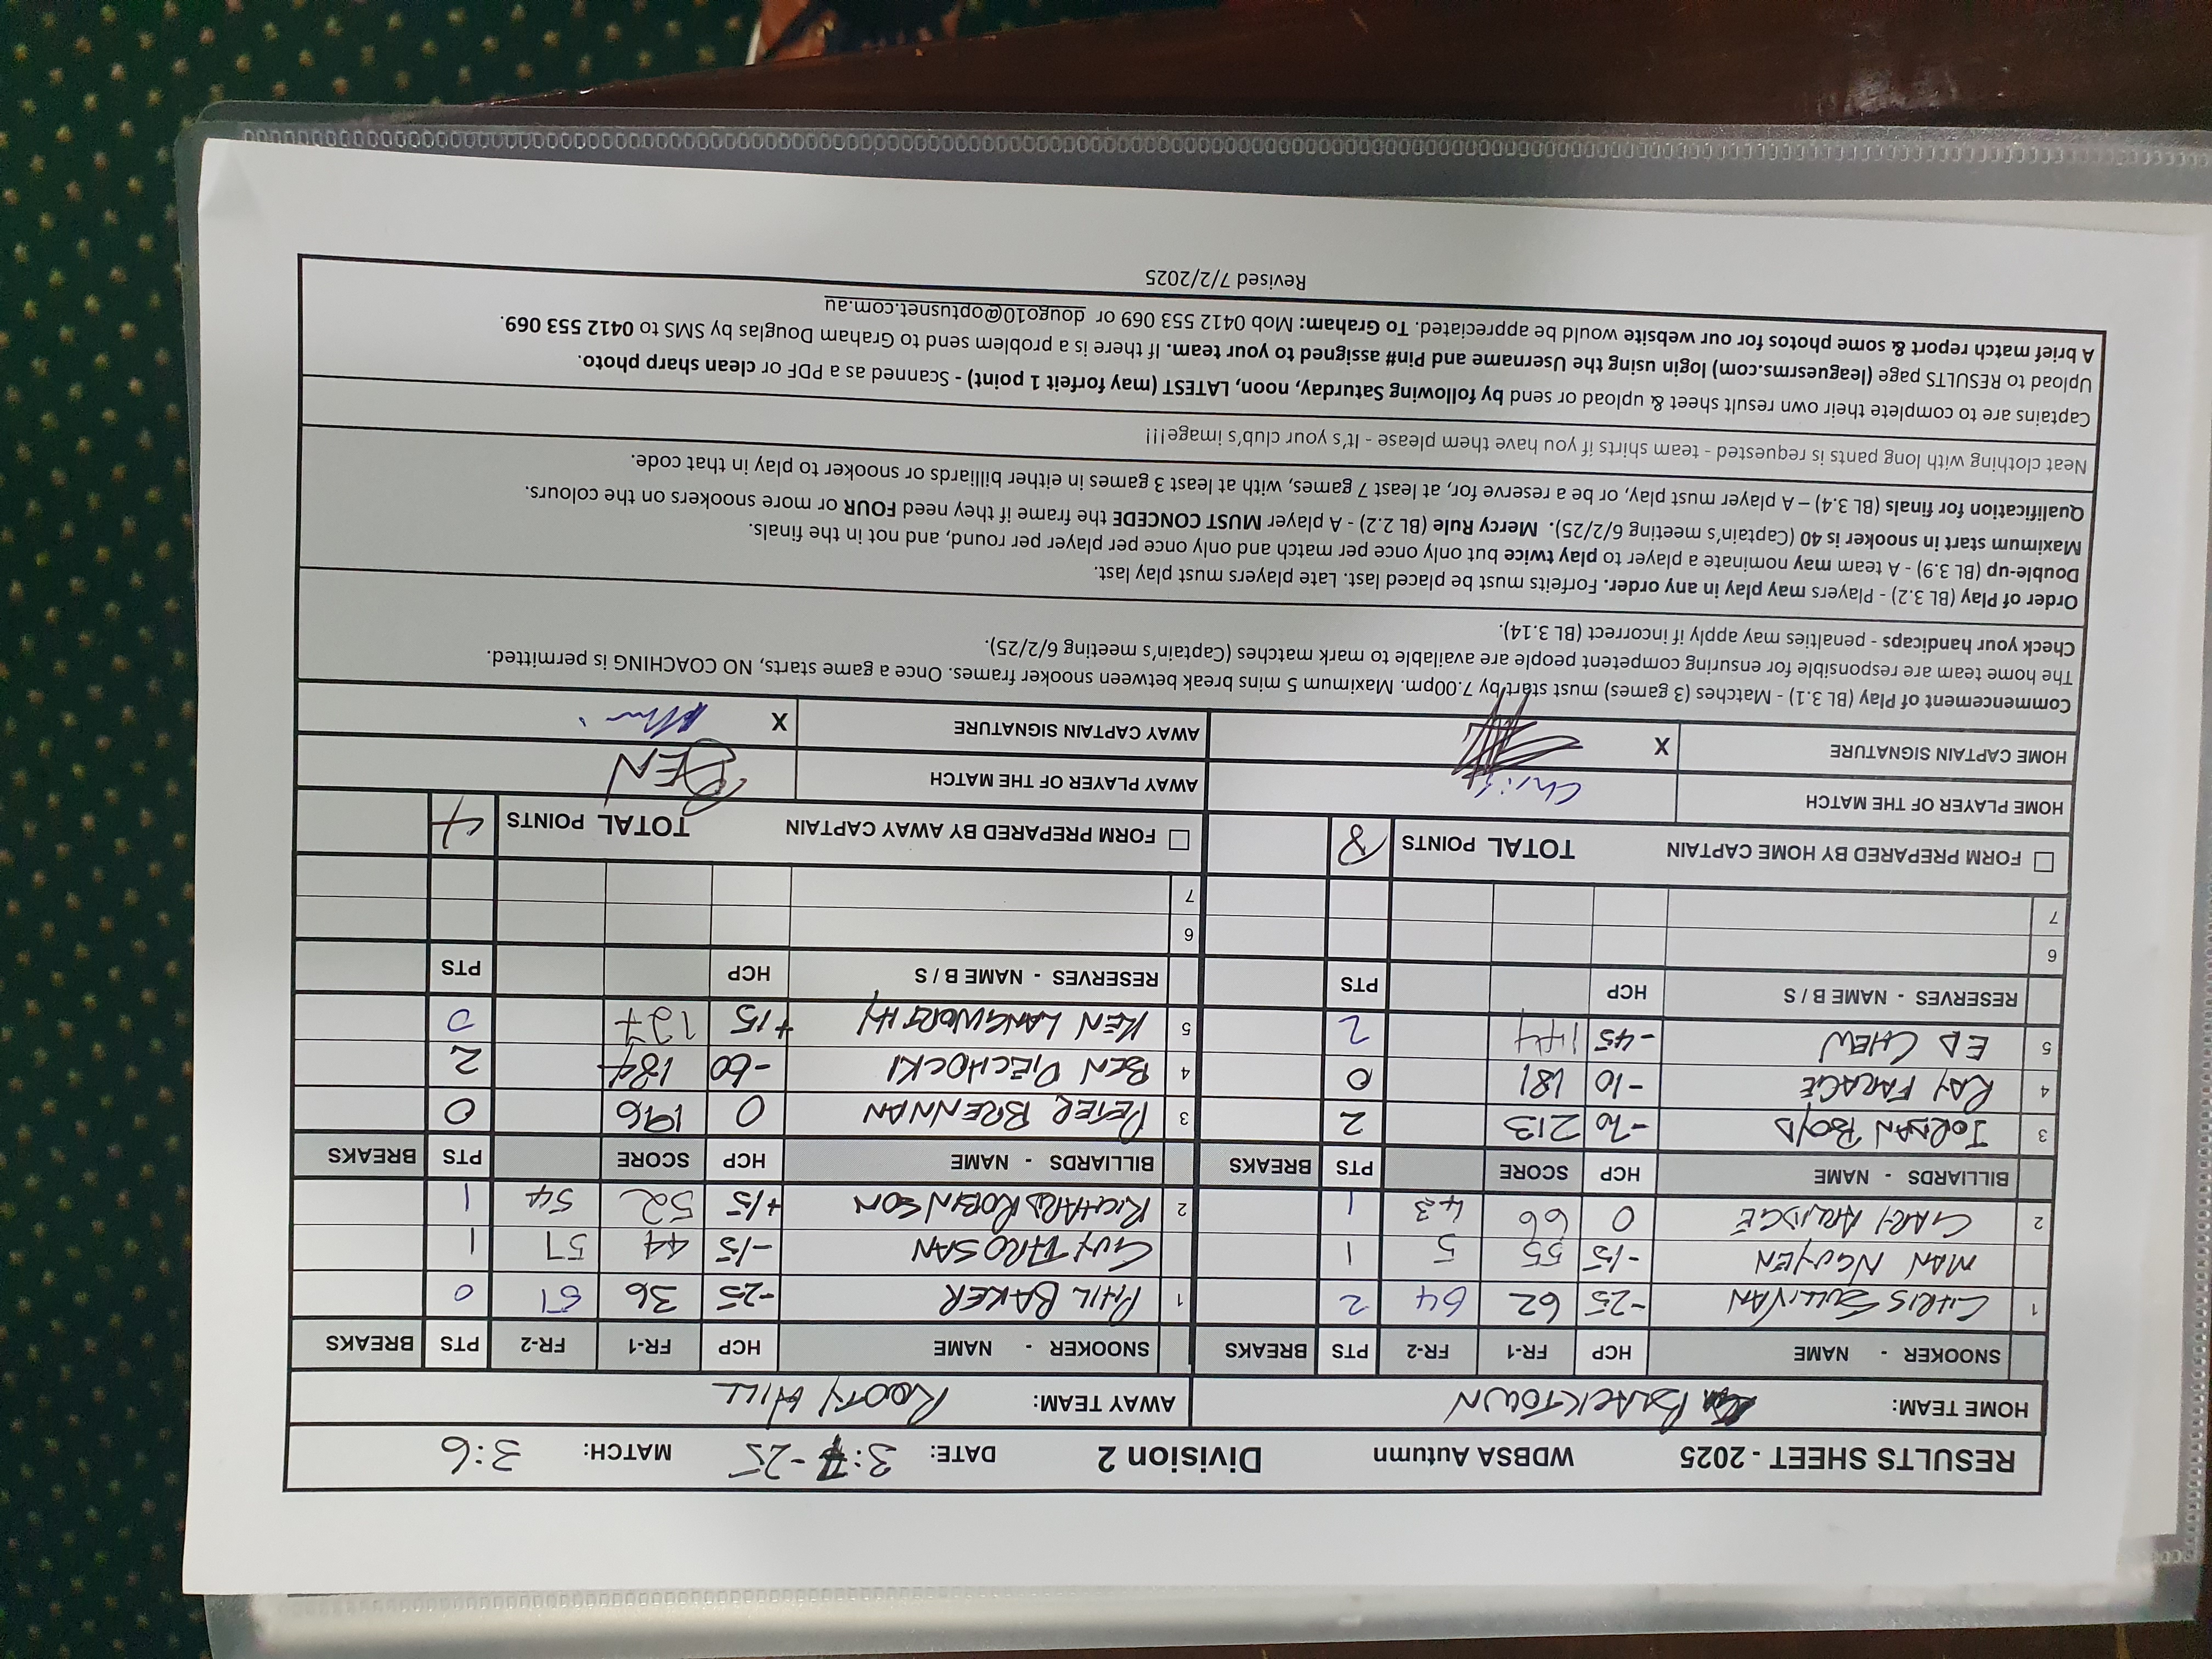 RESULTS SHEET - 2025 WDBSA Autumn Division 2 DATE: 3:7-25 MATCH: 3:6
HOME TEAM: BLACKTOWN AWAY TEAM: ROOTY HILL
SNOOKER - NAME HCP FR-1 FR-2 PTS BREAKS SNOOKER - NAME HCP FR-1 FR-2 PTS BREAKS
1 CHRIS SULLIVAN -25 62 64 2 1 PHIL BAKER -25 36 51 0
MAN NGUYEN -15 55 5 1 GUY THROSAN -15 44 57 1
2 GARY ARLIDGE 0 66 43 1 2 RICHARD ROBINSON +15 52 54 1
BILLIARDS - NAME HCP SCORE PTS BREAKS BILLIARDS - NAME HCP SCORE PTS BREAKS
3 JORDAN BOYD -70 213 2 3 PETER BRENNAN 0 196 0
4 RAY FARAGE -10 181 0 4 BEN PIECHOCKI -60 184 2
5 ED CHEW -45 144 2 5 KEN LANGWORTHY +15 127 0
RESERVES - NAME B / S HCP PTS RESERVES - NAME B / S HCP PTS
6 6
7 7
FORM PREPARED BY HOME CAPTAIN TOTAL POINTS 8 FORM PREPARED BY AWAY CAPTAIN TOTAL POINTS 4
HOME PLAYER OF THE MATCH Chris AWAY PLAYER OF THE MATCH BEN
HOME CAPTAIN SIGNATURE X AWAY CAPTAIN SIGNATURE X
Commencement of Play (BL 3.1) - Matches (3 games) must start by 7.00pm. Maximum 5 mins break between snooker frames. Once a game starts, NO COACHING is permitted.
The home team are responsible for ensuring competent people are available to mark matches (Captain's meeting 6/2/25).
Check your handicaps - penalties may apply if incorrect (BL 3.14).
Order of Play (BL 3.2) - Players may play in any order. Forfeits must be placed last. Late players must play last.
Double-up (BL 3.9) - A team may nominate a player to play twice but only once per match and only once per player per round, and not in the finals.
Maximum start in snooker is 40 (Captain's meeting 6/2/25). Mercy Rule (BL 2.2) - A player MUST CONCEDE the frame if they need FOUR or more snookers on the colours.
Qualification for finals (BL 3.4) – A player must play, or be a reserve for, at least 7 games, with at least 3 games in either billiards or snooker to play in that code.
Neat clothing with long pants is requested - team shirts if you have them please - It's your club's image!!!
Captains are to complete their own result sheet & upload or send by following Saturday, noon, LATEST (may forfeit 1 point) - Scanned as a PDF or clean sharp photo.
Upload to RESULTS page (leaguesrms.com) login using the Username and Pin# assigned to your team. If there is a problem send to Graham Douglas by SMS to 0412 553 069.
A brief match report & some photos for our website would be appreciated. To Graham: Mob 0412 553 069 or dougo10@optusnet.com.au
Revised 7/2/2025